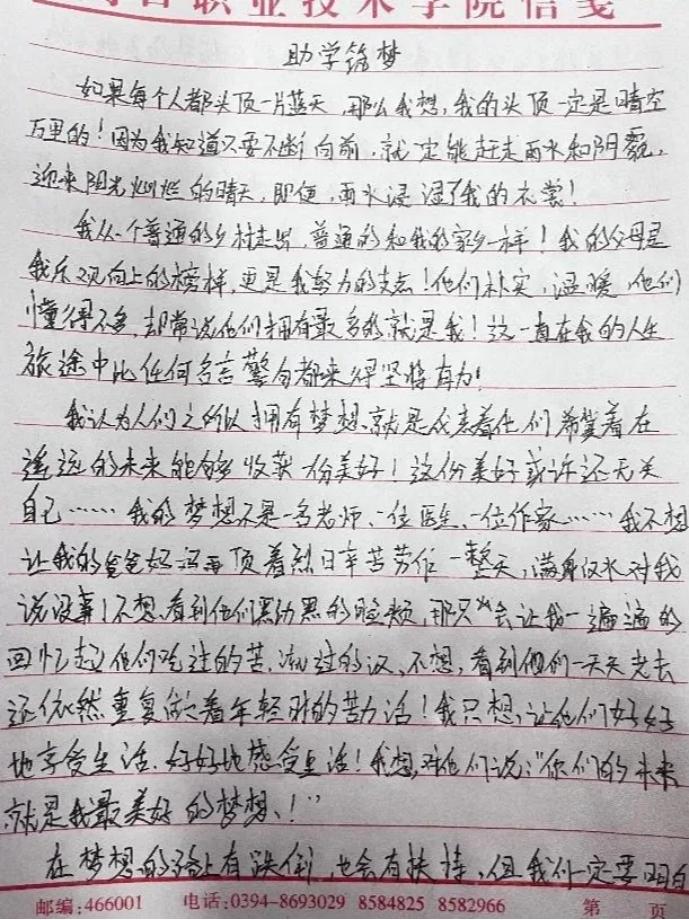 省职业技术学院信笺
助学筑梦
如果每个人都头顶一片蓝天,那么我想,我的头顶一定是晴空
万里的!因为我知道只要不断向前,就一定能赶走雨水和阴霾,
迎来阳光灿烂的晴天,即便,雨水浸湿了我的衣裳!
我从一个普通的乡村走出,普通的和我的家乡一样!我的父母是
我乐观向上的榜样,更是我努力的支点!他们朴实,温暖,他们
懂得不多,却常说他们拥有最多的就是我!这一直在我的人生
旅途中比任何名言警句都来得坚将有力!
我认为人们之所以拥有梦想,就是代表着他们希冀着在
遥远的未来能够收获一份美好!这份美好或许还无关
自己……我的梦想不是一名老师、一位医生、一位作家……我不想
让我的爸爸妈妈再顶着烈日辛苦劳作一整天,满身汗水对我
说没事!不想,看到他们黑黝黑的脸颊,那只会让我一遍遍的
回忆起他们吃过的苦,流过的汉,不想,看到他们一天天老去
还依然重复做着年轻时的苦力活!我只想,让他们好好
地享受生活,好好地感受生活!我想,对他们说:“你们的未来
就是我最美好的梦想!”
在梦想的路上有跌倒,也会有扶持,但我们一定要明白
邮编:466001 电话:0394-8693029 8584825 8582966 第 页